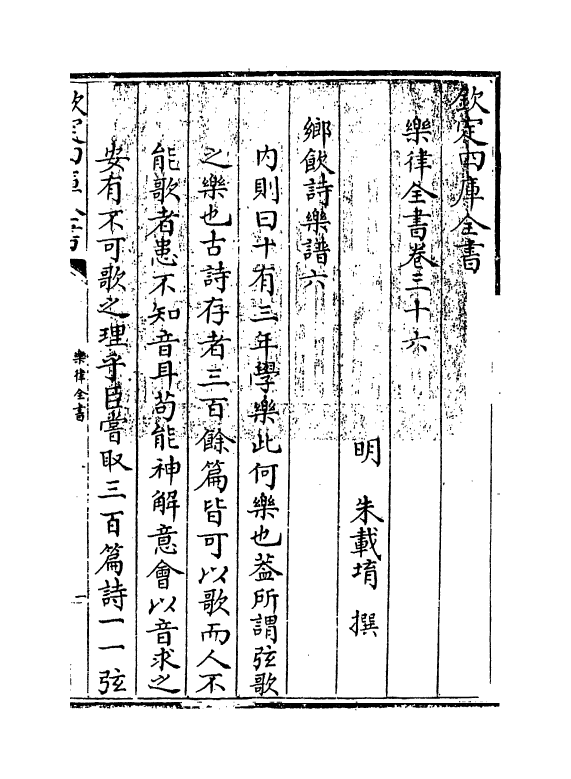 欽定四庫全書
樂律全書卷三十六
明 朱載堉 撰
鄉飲詩樂譜六
内則曰十有三年學樂此何樂也葢所謂弦歌
之樂也古詩存者三百餘篇皆可以歌而人不
能歌者患不知音耳茍能神解意會以音求之
安有不可歌之理乎臣嘗取三百篇詩一一弦
欽定四庫全書
樂律全書
一